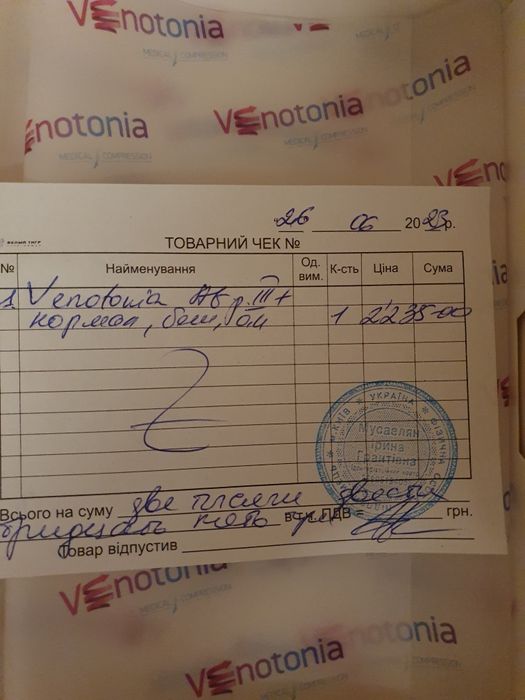 Venotonia
MEDICAL COMPRESSION
Venotonia
MEDICAL COMPRESSION
Venotonia
MEDICAL COMPRESSION
26 06 2023р.
ТОВАРНИЙ ЧЕК №
№ Найменування Од. вим. К-сть Ціна Сума
1 Venotonia Ав р. III+
нормал, беж, 1 2235-00
УКРАЇНА
М.КИЇВ
ФІЗИЧНА
Мусаелян
Ірина
Всього на суму две тысячи двести
тридцать пять в т.ч. ПДВ = грн.
Товар відпустив
Venotonia
MEDICAL COMPRESSION
Venotonia
MEDICAL COMPRESSION